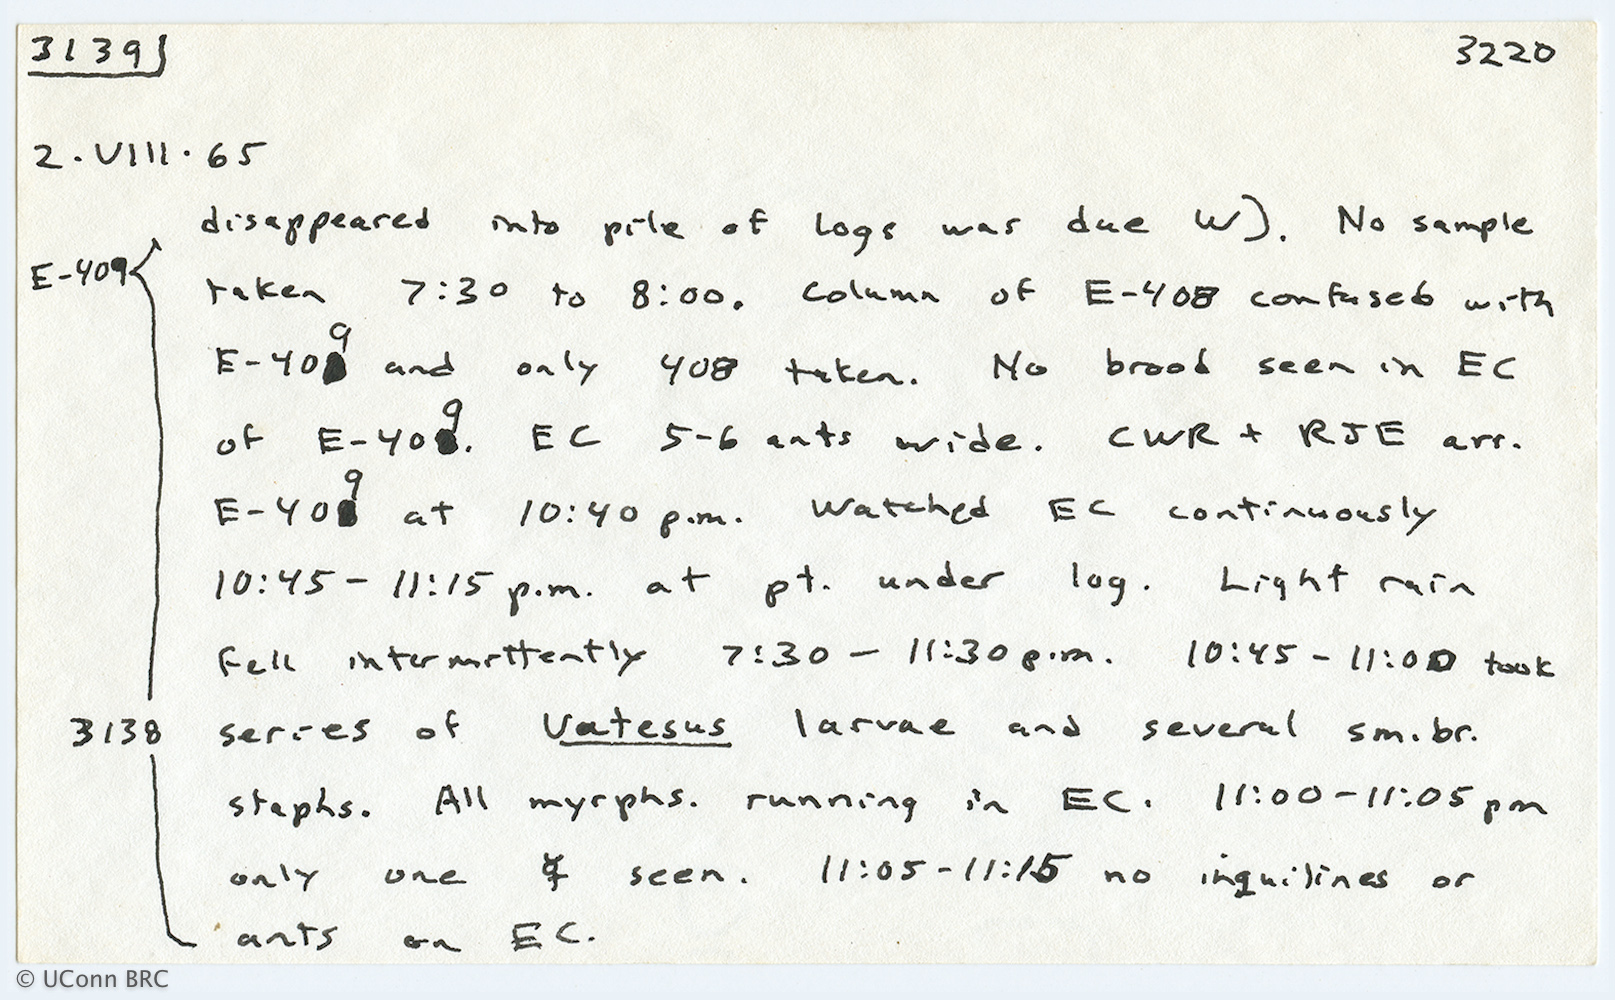 3139 3220
2.VIII.65
disappeared into pile of logs was due W). No sample
E-409 taken 7:30 to 8:00. Column of E-408 confused with
E-409 and only 408 taken. No brood seen in EC
of E-409. EC 5-6 ants wide. CWR + RJE arr.
E-409 at 10:40 p.m. Watched EC continuously
10:45-11:15 p.m. at pt. under log. Light rain
fell intermittently 7:30-11:30 p.m. 10:45-11:00 took
3138 series of Vatesus larvae and several sm. br.
staphs. All myrphs. running in EC. 11:00-11:05 pm
only one ☿ seen. 11:05-11:15 no inquilines or
ants on EC.
© UConn BRC